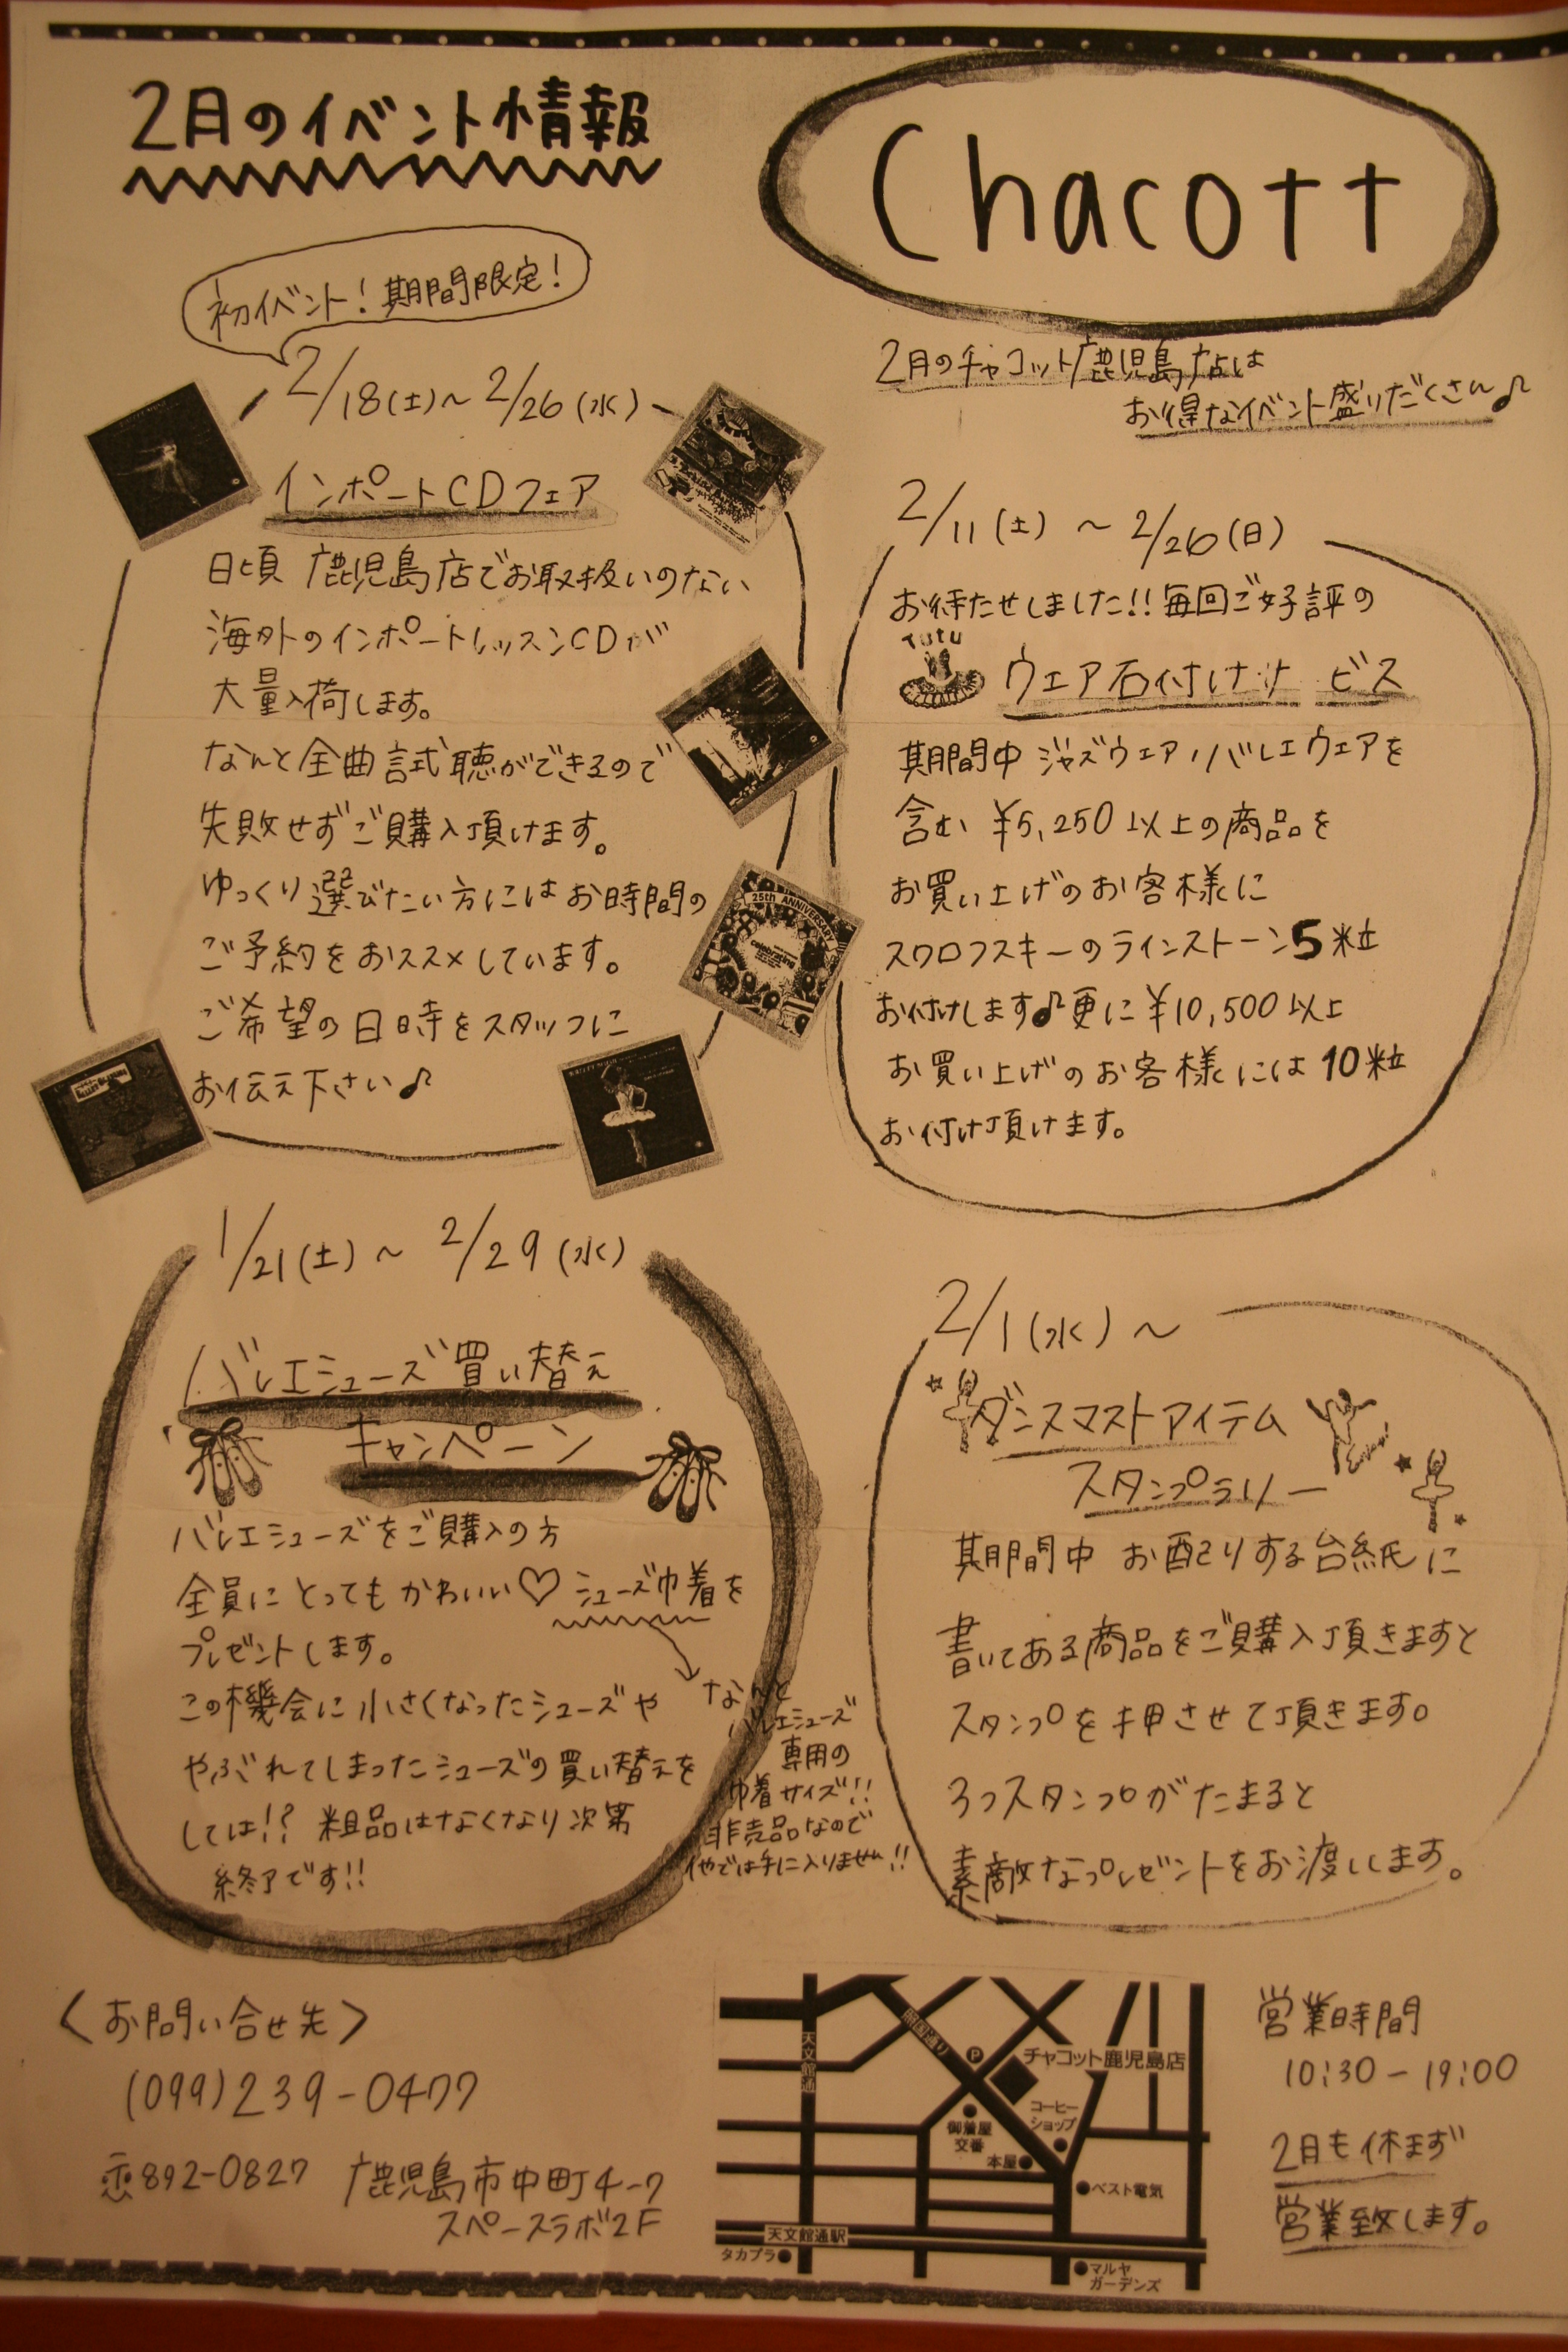 2月のイベント情報
Chacott
2月のチャコット鹿児島店は
お得なイベント盛りだくさん♪
初イベント!期間限定!
2/18(土)~2/26(水)
インポートCDフェア
日頃 鹿児島店でお取扱いのない
海外のインポートレッスンCDが
大量入荷します。
なんと全曲試聴ができるので
失敗せずご購入頂けます。
ゆっくり選びたい方にはお時間の
ご予約をおススメしています。
ご希望の日時をスタッフに
お伝え下さい♪
25th ANNIVERSARY
2/11(土) ~ 2/26(日)
お待たせしました!!毎回ご好評の
TuTu
ウェア石付けサービス
期間中 ジャズウェア、バレエウェアを
含む ¥5,250以上の商品を
お買い上げのお客様に
スワロフスキーのラインストーン5粒
お付けします♪更に¥10,500以上
お買い上げのお客様には10粒
お付け頂けます。
1/21(土) ~ 2/29(水)
バレエシューズ買い替え
キャンペーン
バレエシューズをご購入の方
全員にとってもかわいい♡シューズ巾着を
プレゼントします。
この機会に小さくなったシューズや
やぶれてしまったシューズの買い替えを
しては!?粗品はなくなり次第
終了です!!
なんと
バレエシューズ
専用の
巾着サイズ!!
非売品なので
他では手に入りません!!
2/1(水)~
ダンスマストアイテム
スタンプラリー
期間中 お配りする台紙に
書いてある商品をご購入頂きますと
スタンプを押させて頂きます。
3つスタンプがたまると
素敵なプレゼントをお渡しします。
<お問い合せ先>
(099)239-0477
〒892-0827 鹿児島市中町4-7
スペースラボ2F
天文館通
照国通り
P
チャコット鹿児島店
コーヒー
ショップ
御着屋
交番
本屋
ベスト電気
天文館通駅
タカプラ
マルヤ
ガーデンズ
営業時間
10:30-19:00
2月も休まず
営業致します。